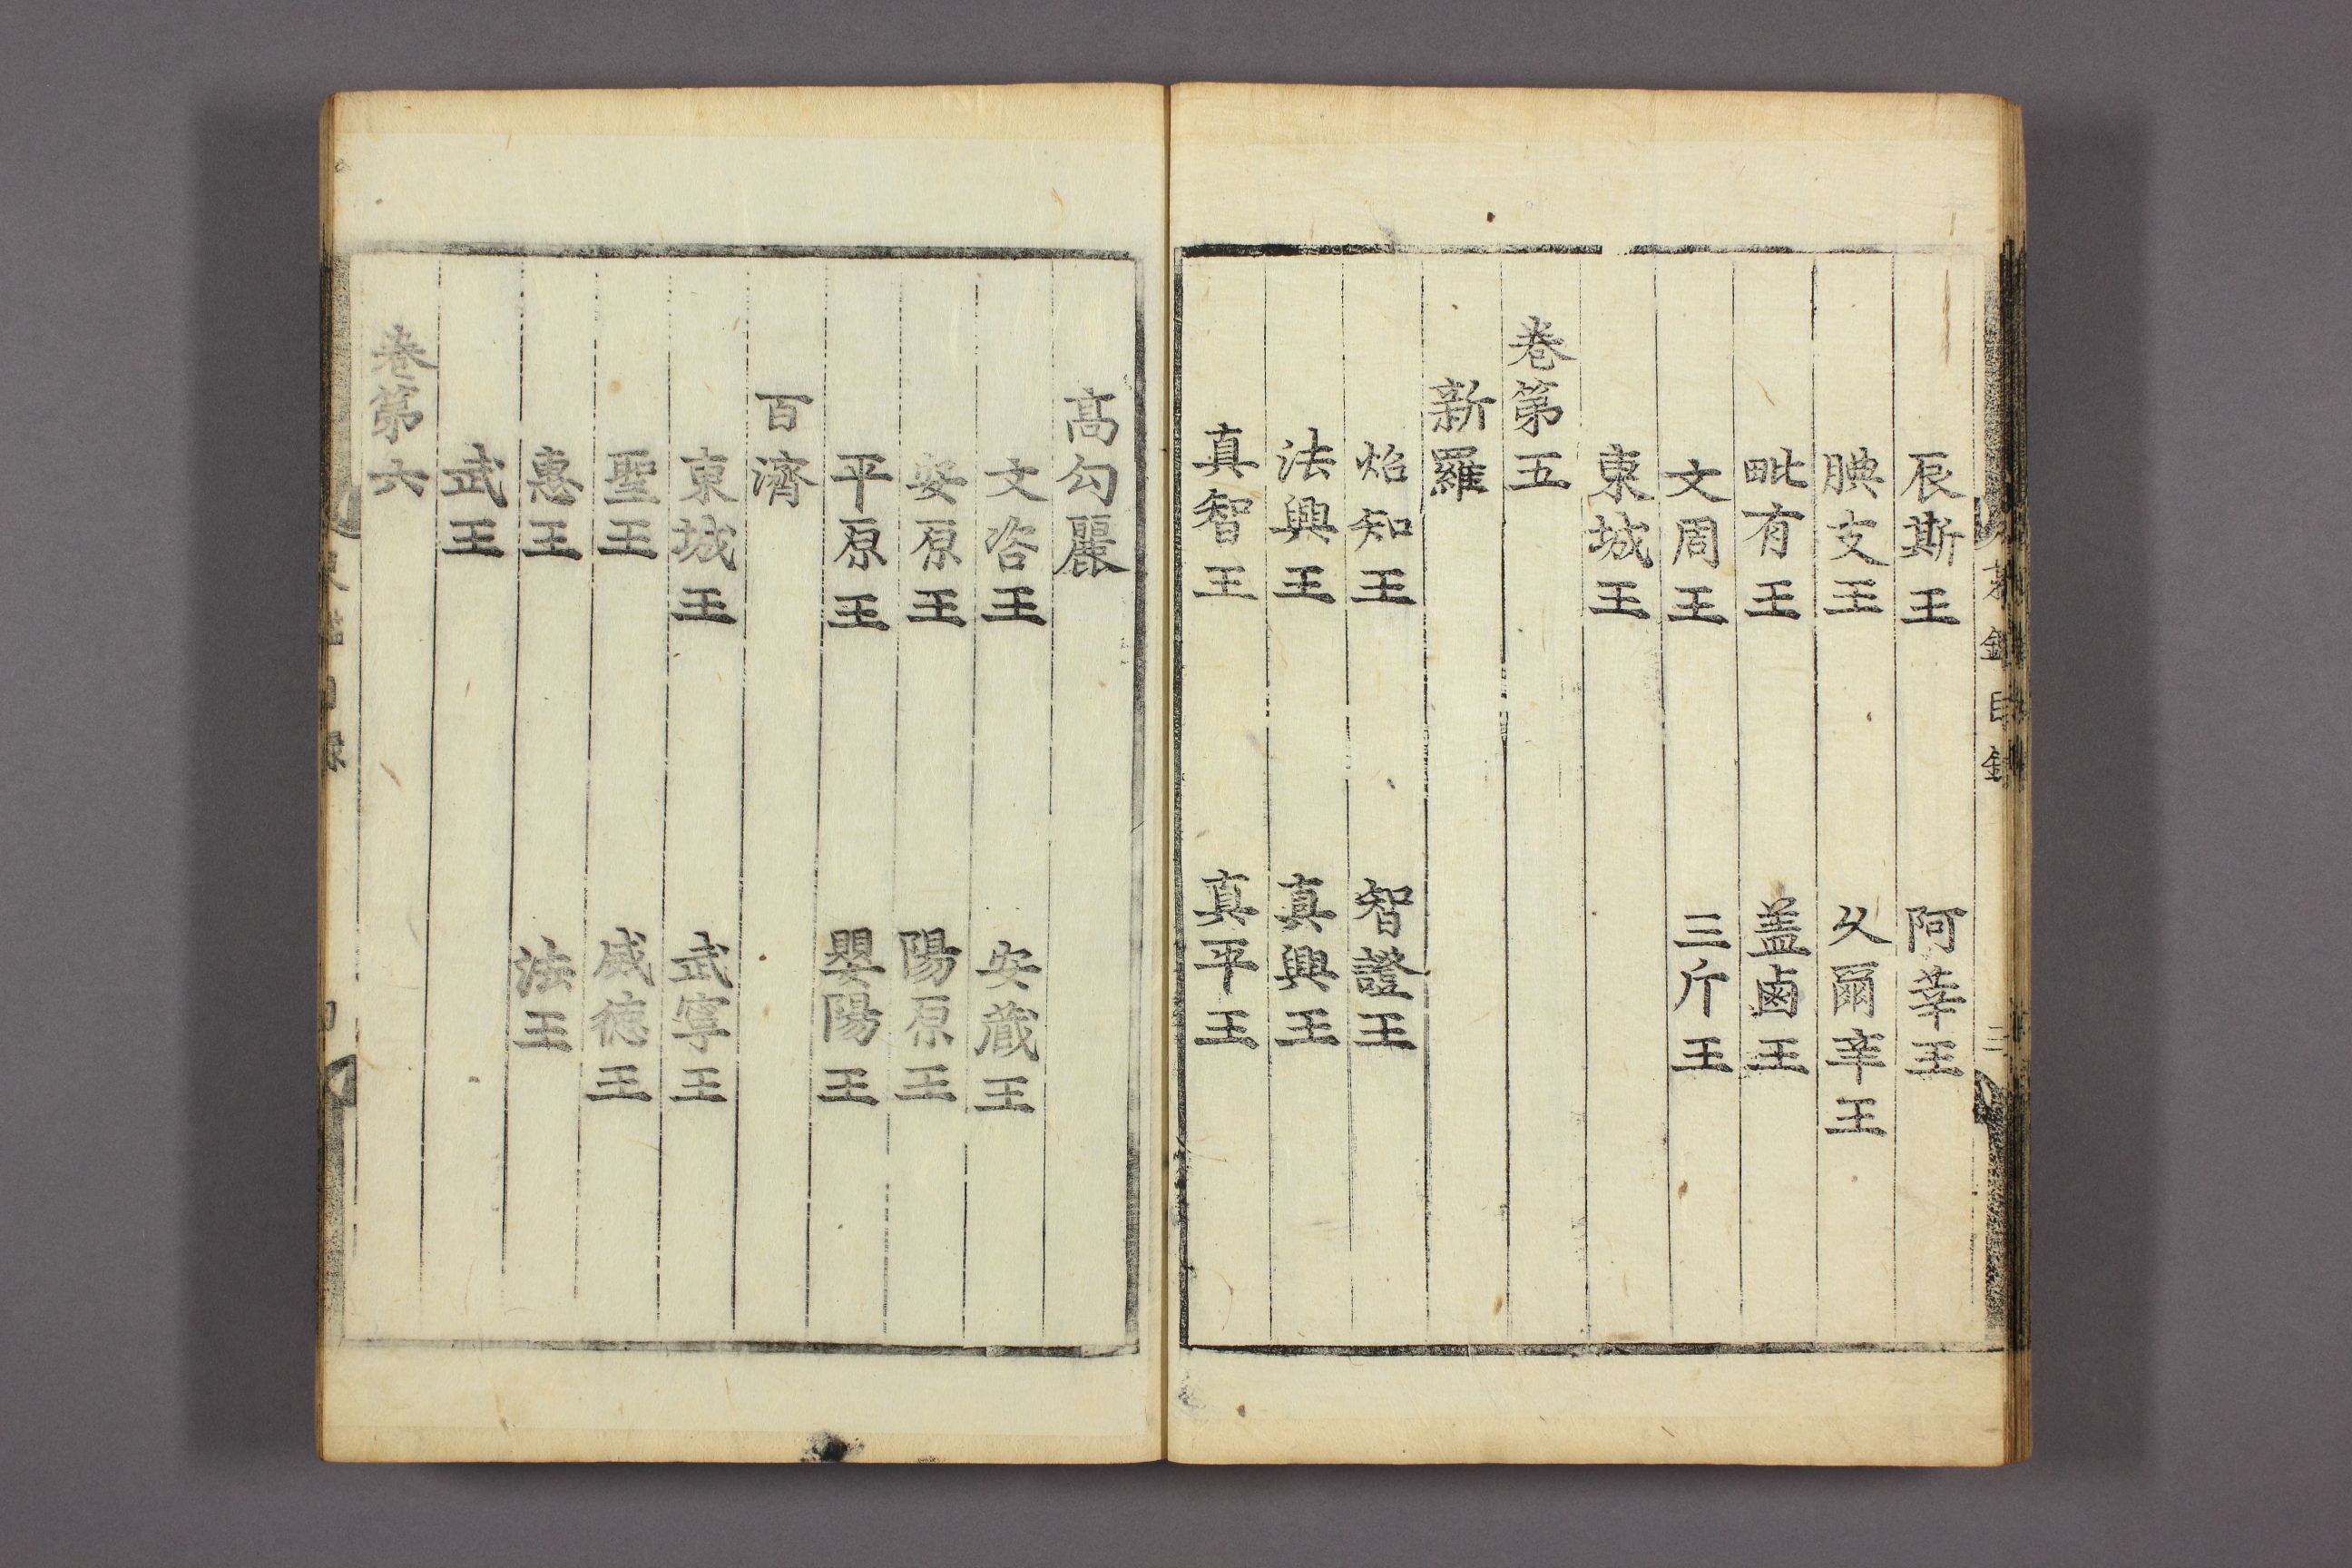 辰斯王 阿莘王
腆支王 久爾辛王
毗有王 盖鹵王
文周王 三斤王
東城王
卷第五
新羅
炤知王 智證王
法興王 真興王
真智王 真平王
高勾麗
文咨王 安藏王
安原王 陽原王
平原王 嬰陽王
百濟
東城王 武寧王
聖王 威德王
惠王 法王
武王
卷第六